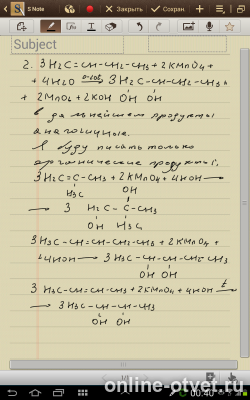 S Note
Закрыть
Сохран.
Subject
2. 3H₂C=CH-CH₂-CH₃+2KMnO₄+
+4H₂O 0-10°C 3H₂C-CH-CH₂-CH₃+
+2MnO₂+2KOH OH OH
в дальнейшем продукты
аналогичные.
я буду писать только
органические продукты.
3H₂C=C-CH₃+2KMnO₄+4HOH→
H₃C OH
→ 3 H₂C-C-CH₃
OH H₃C
3H₃C-CH=CH-CH₂-CH₃+2KMnO₄+
4HOH→3H₃C-CH-CH-CH₂-CH₃
OH OH
3H₃C-CH=CH-CH₃+2KMnO₄+4HOH t→
→ 3H₃C-CH-CH-CH₃
OH OH
1/1
00:40
www.otvet-ok.ru